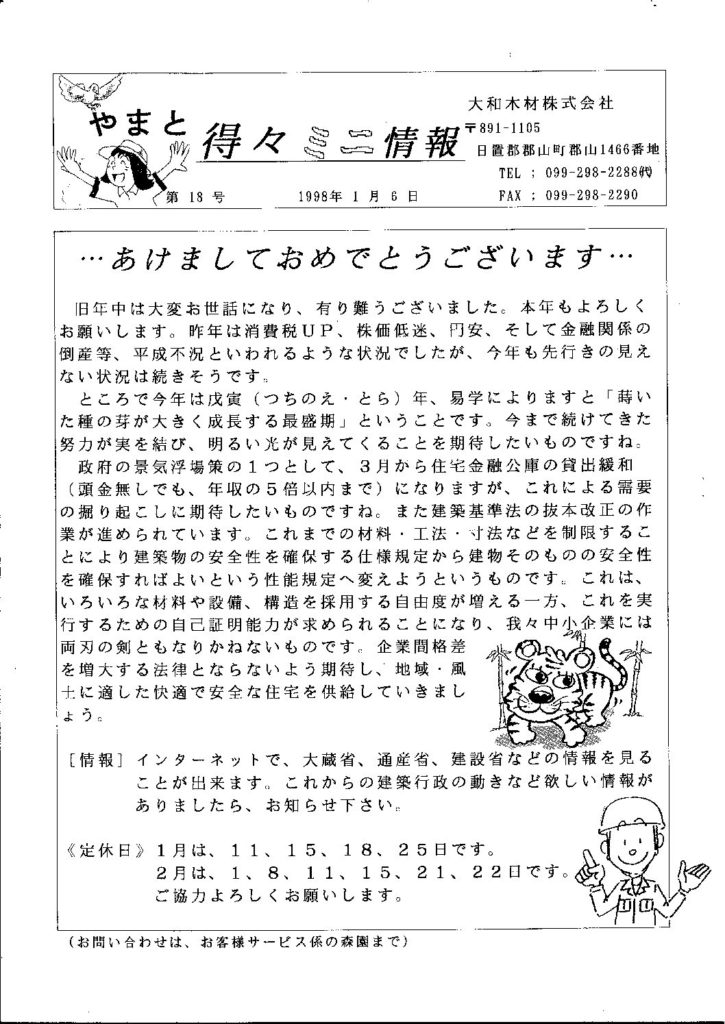 やまと
得々ミニ情報
第 18 号
1998年 1 月 6 日
大和木材株式会社
〒891-1105
日置郡郡山町郡山1466番地
TEL ; 099-298-2288㈹
FAX ; 099-298-2290
…あけましておめでとうございます…
旧年中は大変お世話になり、有り難うございました。本年もよろしく
お願いします。昨年は消費税UP、株価低迷、円安、そして金融関係の
倒産等、平成不況といわれるような状況でしたが、今年も先行きの見え
ない状況は続きそうです。
ところで今年は戊寅（つちのえ・とら）年、易学によりますと「蒔い
た種の芽が大きく成長する最盛期」ということです。今まで続けてきた
努力が実を結び、明るい光が見えてくることを期待したいものですね。
政府の景気浮場策の１つとして、３月から住宅金融公庫の貸出緩和
（頭金無しでも、年収の５倍以内まで）になりますが、これによる需要
の掘り起こしに期待したいものですね。また建築基準法の抜本改正の作
業が進められています。これまでの材料・工法・寸法などを制限するこ
とにより建築物の安全性を確保する仕様規定から建物そのものの安全性
を確保すればよいという性能規定へ変えようというものです。これは、
いろいろな材料や設備、構造を採用する自由度が増える一方、これを実
行するための自己証明能力が求められることになり、我々中小企業には
両刃の剣ともなりかねないものです。企業間格差
を増大する法律とならないよう期待し、地域・風
土に適した快適で安全な住宅を供給していきまし
ょう。
［情報］インターネットで、大蔵省、通産省、建設省などの情報を見る
ことが出来ます。これからの建築行政の動きなど欲しい情報が
ありましたら、お知らせ下さい。
《定休日》１月は、１１、１５、１８、２５日です。
２月は、１、８、１１、１５、２１、２２日です。
ご協力よろしくお願いします。
（お問い合わせは、お客様サービス係の森園まで）